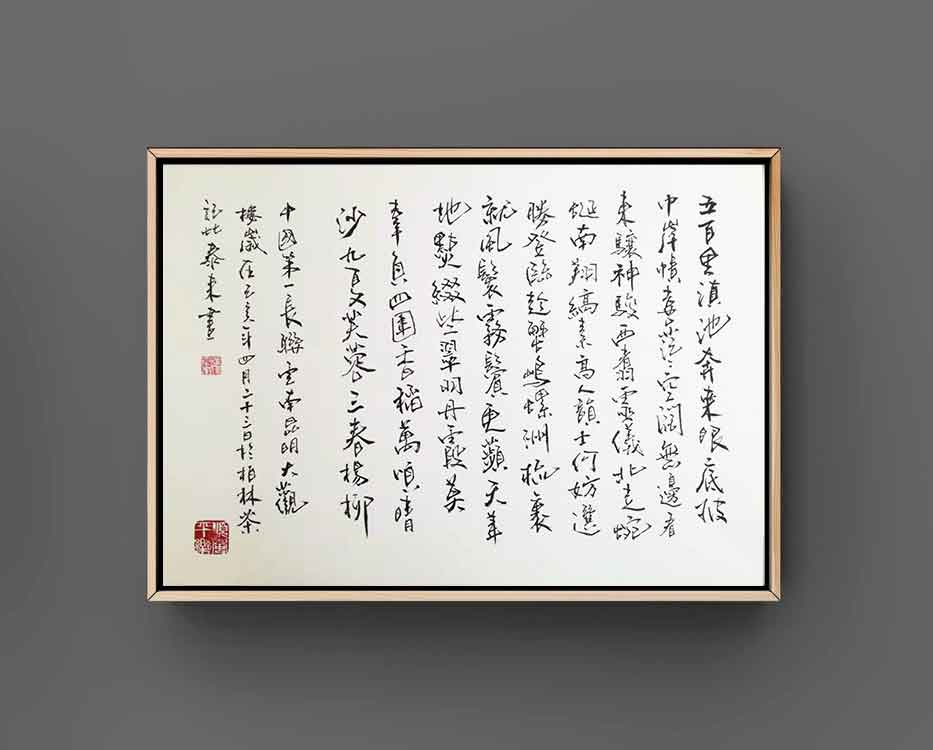 五百里滇池奔来眼底披
巾岸幘喜茫茫空闊無邊看
東驤神駿西翥靈儀北走蜿
蜒南翔縞素高人韻士何妨選
勝登臨趁蟹嶼螺洲梳裹
就風鬟霧鬢更蘋天葦
地點綴些翠羽丹霞莫
辜負四圍香稻萬頃晴
沙九夏芙蓉三春楊柳
中國第一長聯雲南昆明大觀
樓歲在己亥年四月二十三日於柏林茶
此泰来書